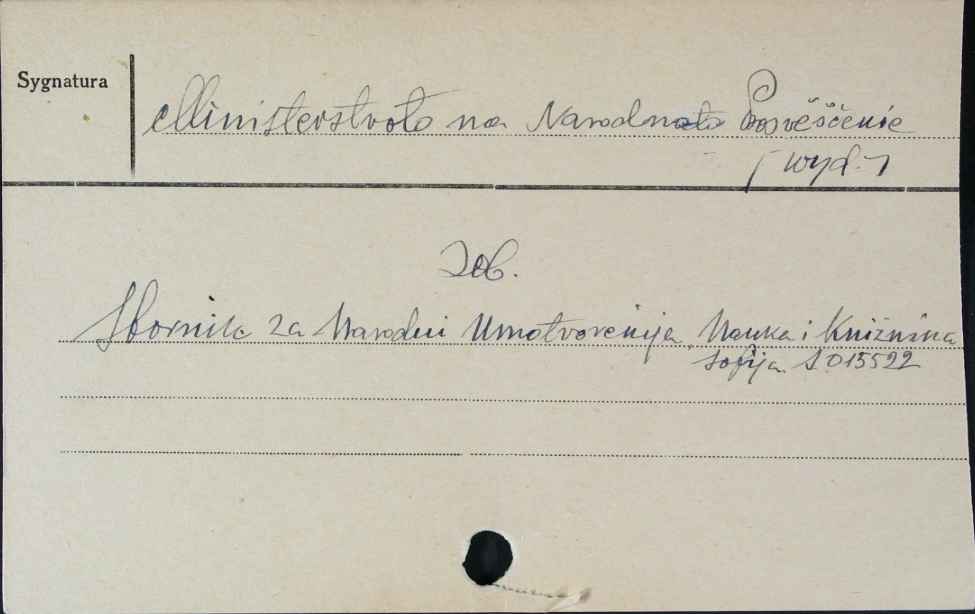 Sygnatura
Ministerstvoto na Narodnoto Prosveščenie
/ wyd. /
Zob.
Sbornik za Narodni Umotvorenija, Nauka i Knižnina
Sofija S 015522